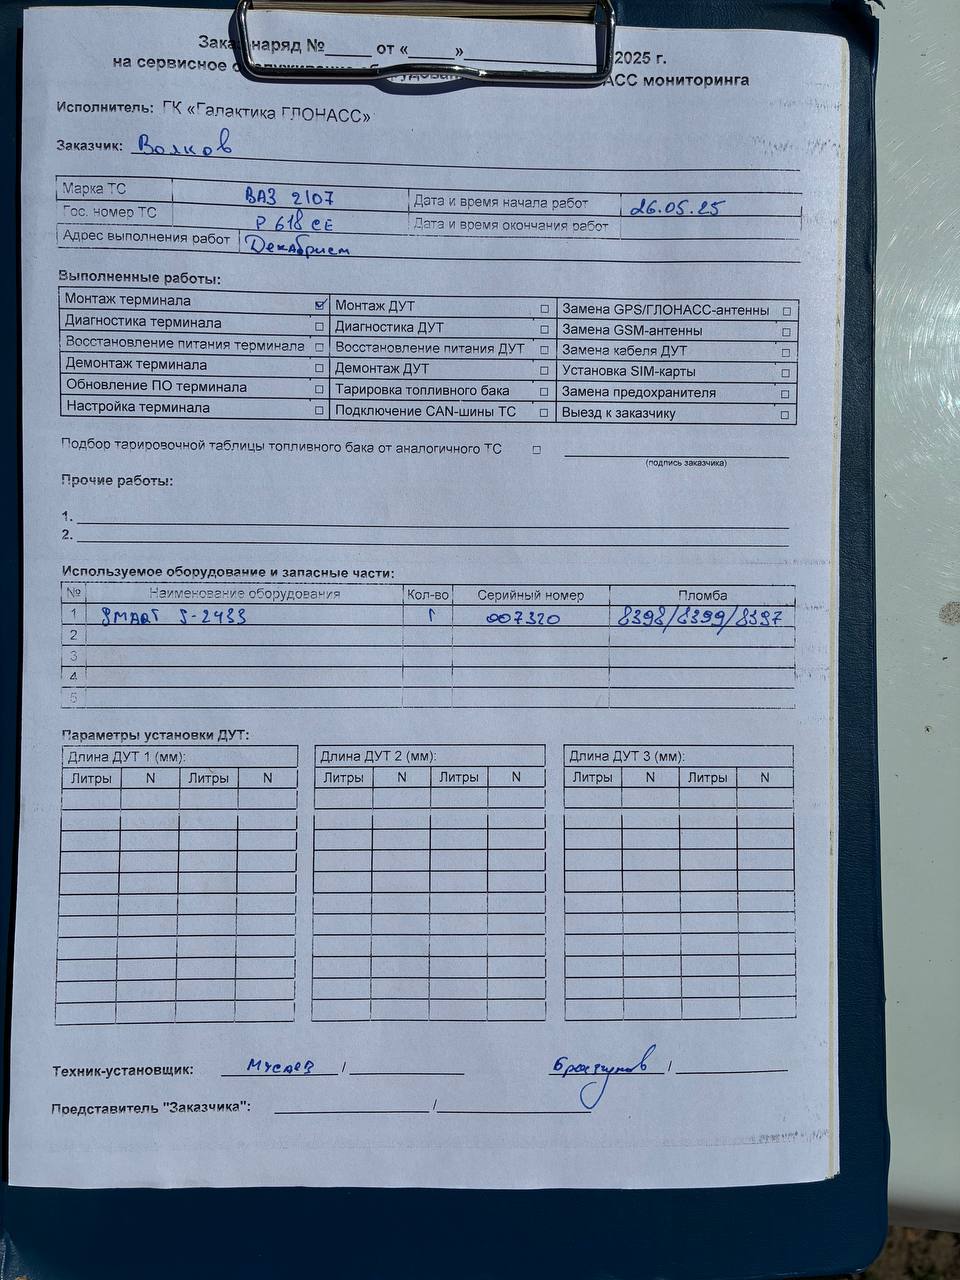 Заказ-наряд №_____ от «____»____________ 2025 г.
на сервисное АСС мониторинга
Исполнитель: ГК «Галактика ГЛОНАСС»
Заказчик: Волков
Марка ТС ВАЗ 2107 Дата и время начала работ 26.05.25
Гос. номер ТС Р 618 СЕ Дата и время окончания работ
Адрес выполнения работ Декабрист
Выполненные работы:
Монтаж терминала ☑ Монтаж ДУТ ☐ Замена GPS/ГЛОНАСС-антенны ☐
Диагностика терминала ☐ Диагностика ДУТ ☐ Замена GSM-антенны ☐
Восстановление питания терминала ☐ Восстановление питания ДУТ ☐ Замена кабеля ДУТ ☐
Демонтаж терминала ☐ Демонтаж ДУТ ☐ Установка SIM-карты ☐
Обновление ПО терминала ☐ Тарировка топливного бака ☐ Замена предохранителя ☐
Настройка терминала ☐ Подключение CAN-шины ТС ☐ Выезд к заказчику ☐
Подбор тарировочной таблицы топливного бака от аналогичного ТС ☐
(подпись заказчика)
Прочие работы:
1.
2.
Используемое оборудование и запасные части:
№ Наименование оборудования Кол-во Серийный номер Пломба
1 SMART S-2433 1 007320 8398/8399/8397
2
3
4
5
Параметры установки ДУТ:
Длина ДУТ 1 (мм): Длина ДУТ 2 (мм): Длина ДУТ 3 (мм):
Литры N Литры N Литры N Литры N Литры N Литры N
Техник-установщик: Мусаев /
Представитель "Заказчика": /